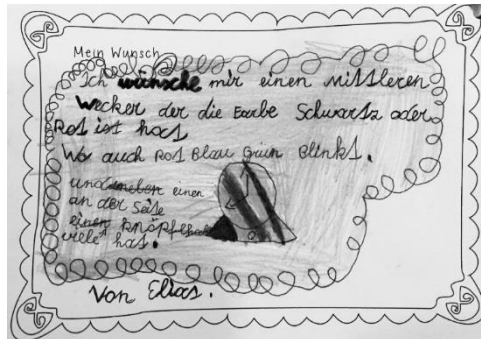 Mein Wunsch
Ich wünsche mir einen Mittleren
Wecker der die Farbe Schwartz oder
Rot ist hat
Wo auch Rot Blau Grün Blinkt.
und einen
an der Seite
viele knöpfe
hat.
Von Elias.